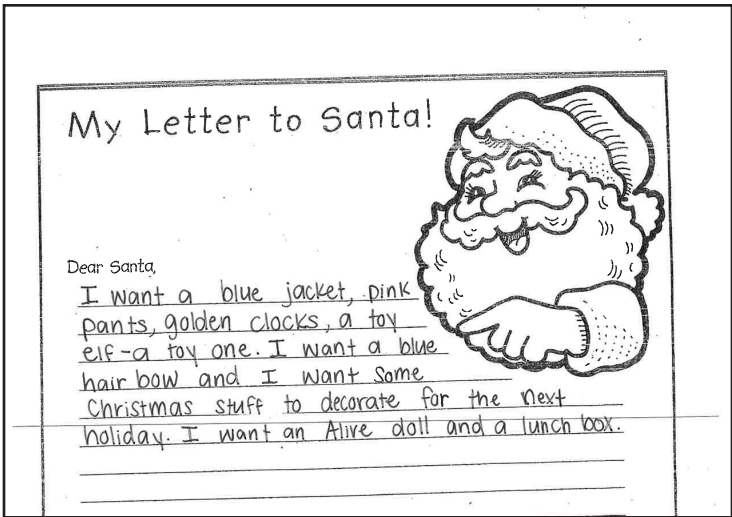 My Letter to Santa!
Dear Santa,
I want a blue jacket, pink
pants, golden clocks, a toy
elf-a toy one. I want a blue
hair bow and I want some
Christmas stuff to decorate for the next
holiday. I want an Alive doll and a lunch box.